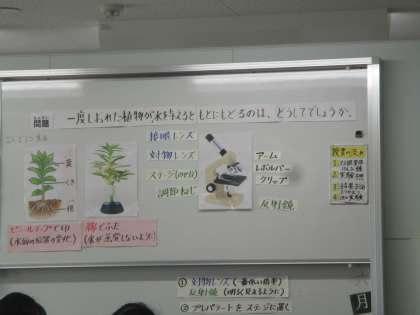 問題
一度しおれた植物が水を与えるともとにもどるのは、どうしてでしょうか。
葉
くき
根
接眼レンズ
対物レンズ
ステージ(のせ台)
調節ねじ
アーム
レボルバー
クリップ
反射鏡
ビニールテープで印
(水面の位置の変化)
綿でふた
(水が蒸発しないように)
① 対物レンズ(一番低い倍率)
反射鏡(明るく見えるように)
② プレパラートをステージに置く
六
月